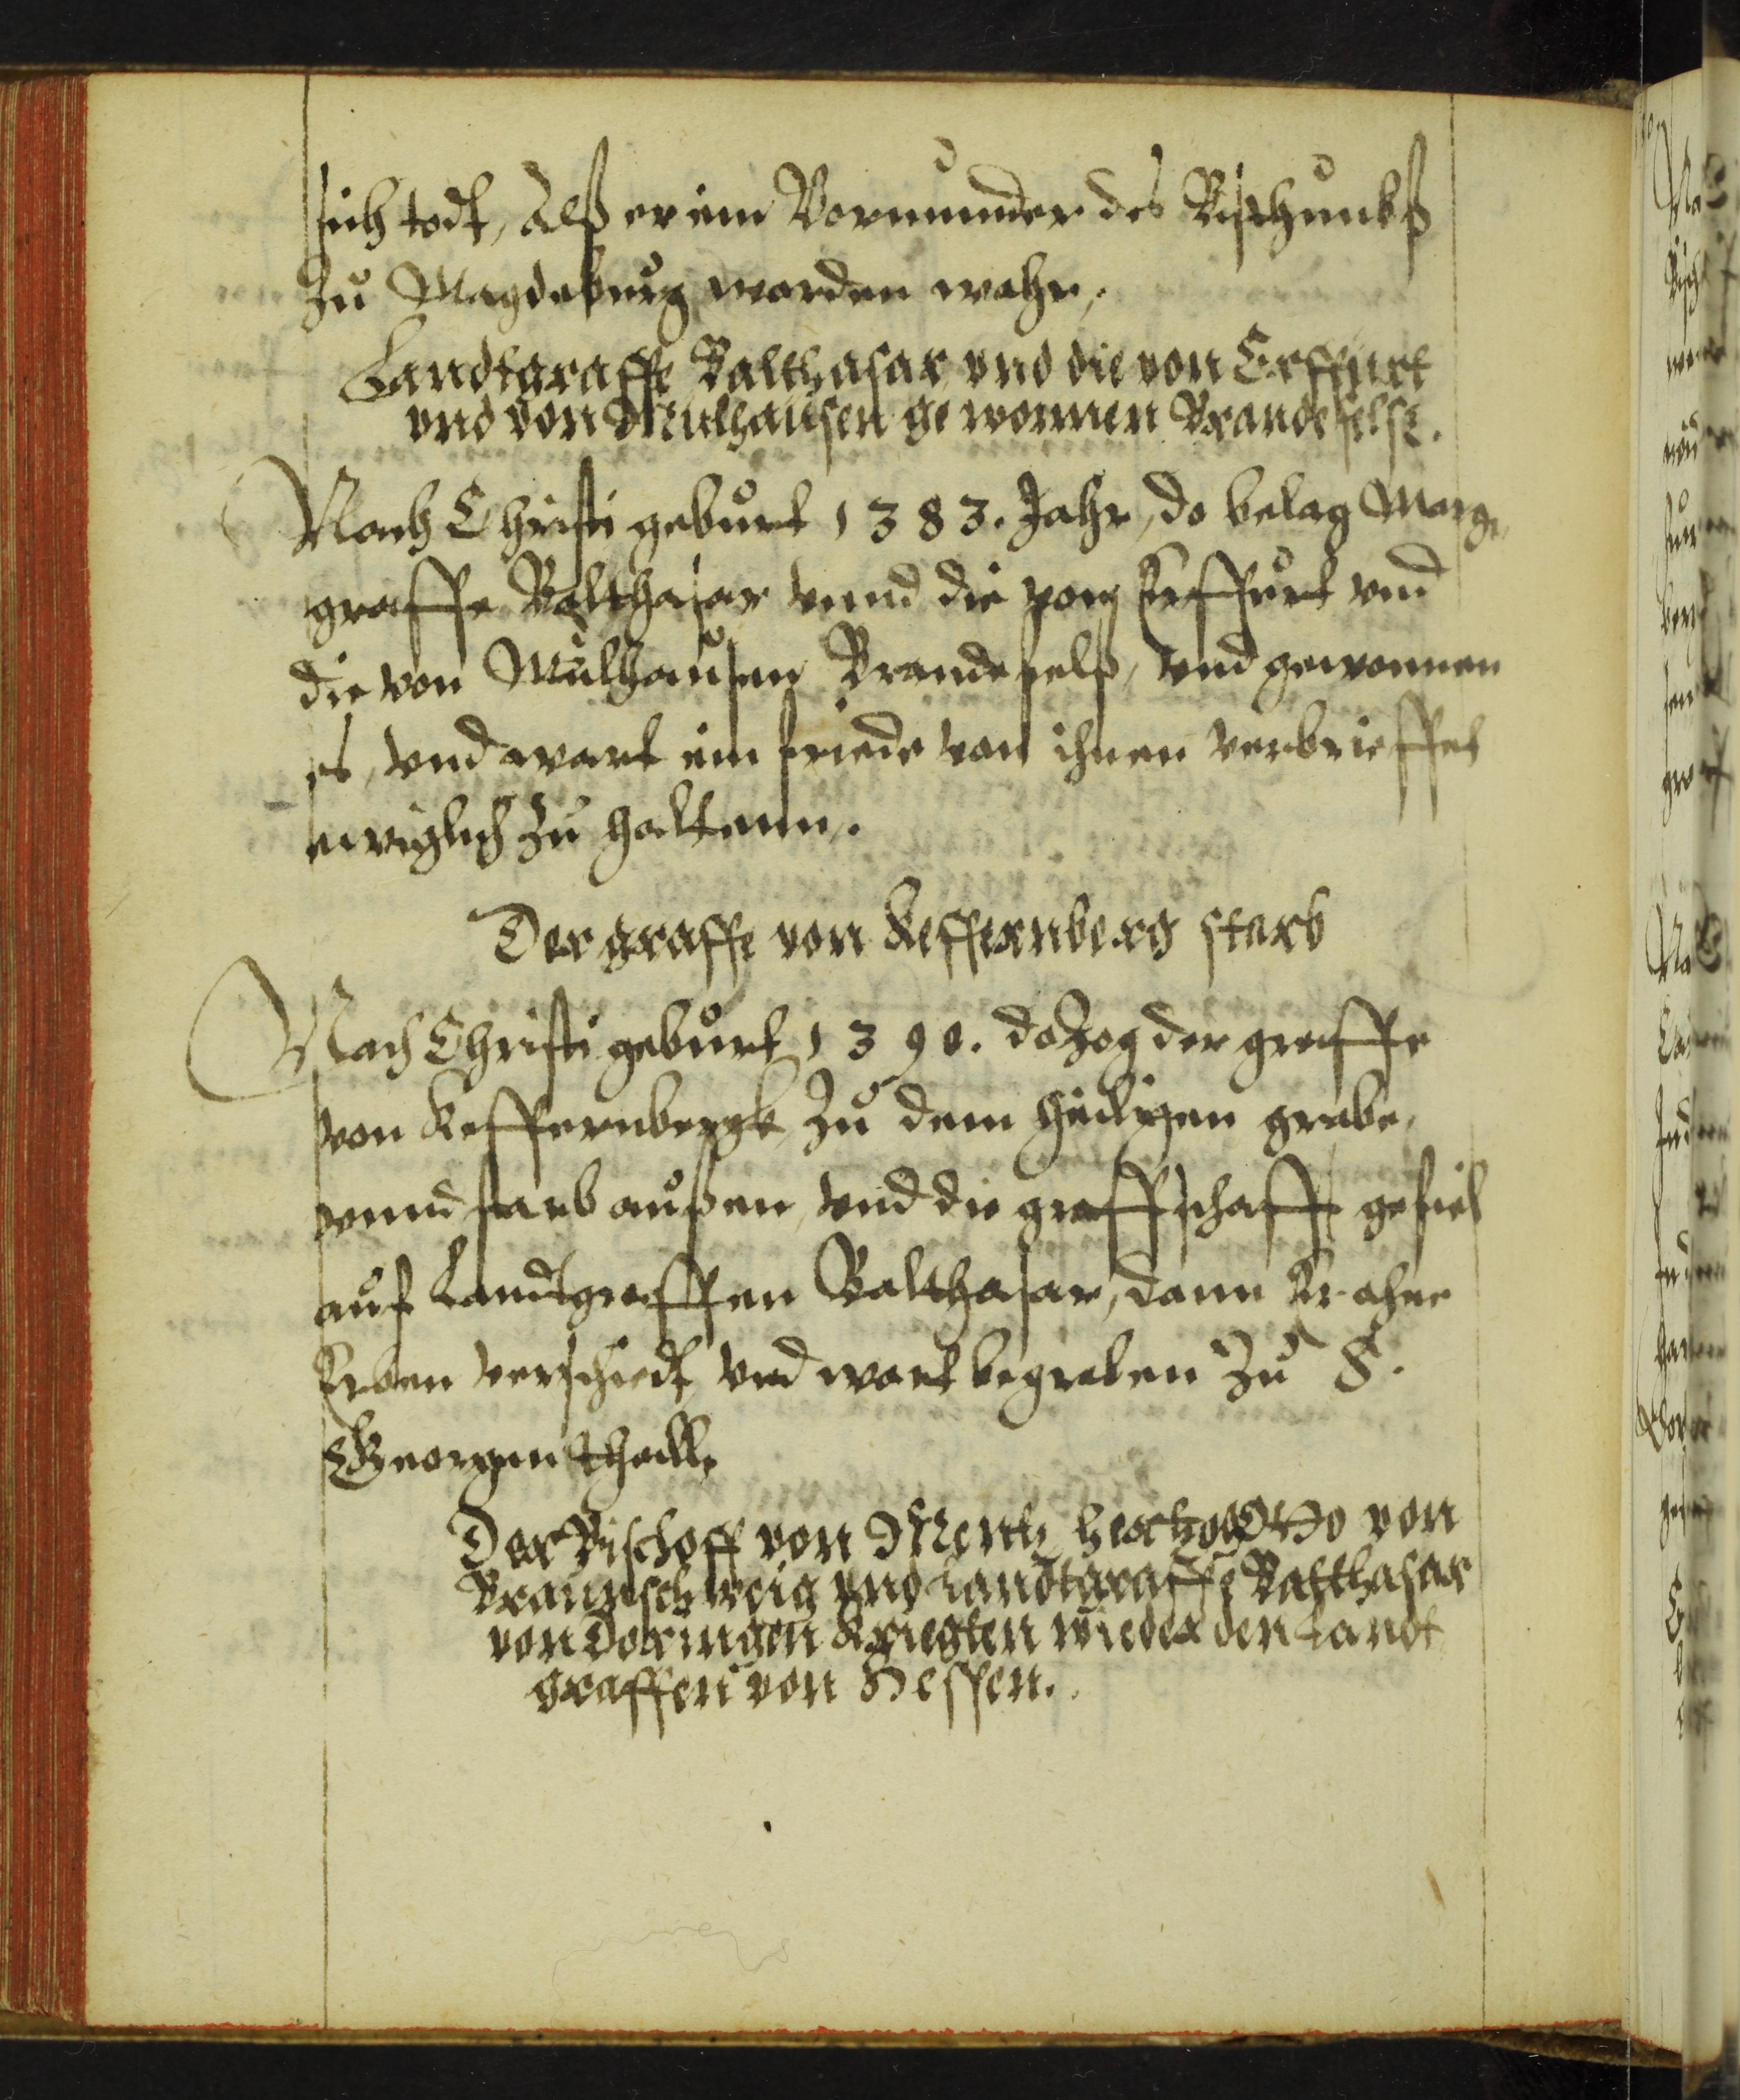 sich todt, Alß er ein Vormunder des Bischumbß
Zu Magdeburg worden wahr,
Landtgraffe Balthasar vnd die von Erffurt
vnd von Mülhausen gewonnen Brandefelsz.
Nach Christi geburt 1383. Jahr, do belag Marg-
graffe Balthasar vnnd die von Erffurt vnd
die von Mülhausen Brandefelß, vnd gewonnen
es, vnd wart ein friede von ihnen verbrieffet
ewiglich zu haltenn.
Der graffe von Keffernberg starb
Nach Christi geburt 1390. do zog der graffe
von Keffernbergk zu dem heiligen grabe,
vnnd starb außen, vnd die graffschafft gefiel
auf Landtgraffen Balthasar, dann Er ohne
Erben verschiedt vnd wart begraben Zu S.
Georgenthall,
Der Bischoff von Mentz hertzog Otto von
Braunschweig vnd Landtgraffe Balthasar
von Doringen Kriegten wieder den Landt
graffen von Hessen.